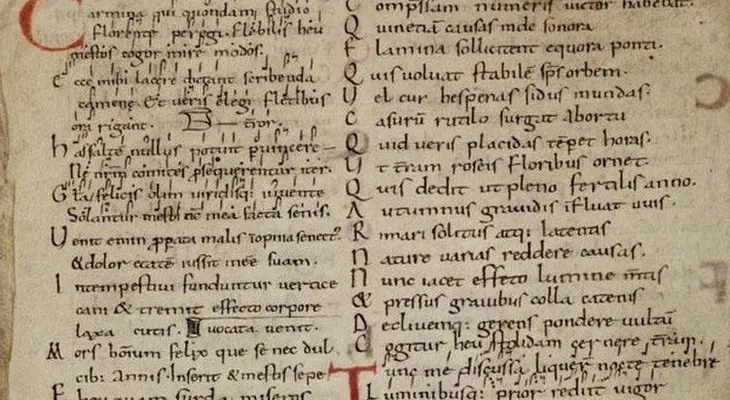 Carmina qui quondam studio
florente peregi. Flebilis heu
mestos cogor inire modos.
Ecce mihi lacere dictant scribenda
camene. Et veris elegi fletibus
ora rigant.
has saltē nullus potuit puincere
Ne nrm̄ comites psequerentur iter.
Gła felicis olim viridisq; iuuente
Solantur mesti nc̄ mea facta senis.
Venit enim ppata malis inopina senect᷒
& dolor etatē iussit inee suam.
Intempestivi funduntur vertice
cani & tremit effecto corpore
laxa cutis.
vocata venit.
Mors hom̄um felix que se nec dul
cib; annis. Inserit & mestis sepe
Eheu quam surda miseros
Compssam numeris victor habebat.
Quinetiā causas unde sonora
Flamina sollicitent equora ponti.
Quis voluat stabilē sps̄ orbem.
Vel cur hesperias sidus in undas.
Casurū rutilo surgat abortu
Quid veris placidas tēpet horas.
Ut t̄ram roseis floribus ornet.
Quis dedit ut pleno fertilis anno.
Autumnus gravidis īfluat uvis.
Rimari solitus atq; latentis
Nature varias reddere causas.
Nunc iacet effeto lumine m̄tis
& pressus gravibus colla catenis
Decliuemq; gerens pondere vultū
Cogitur heu stolidam cernere t̄ram.
Tunc me discussa liquer̄ nocte tenebre
Luminibusq; prior rediit vigor